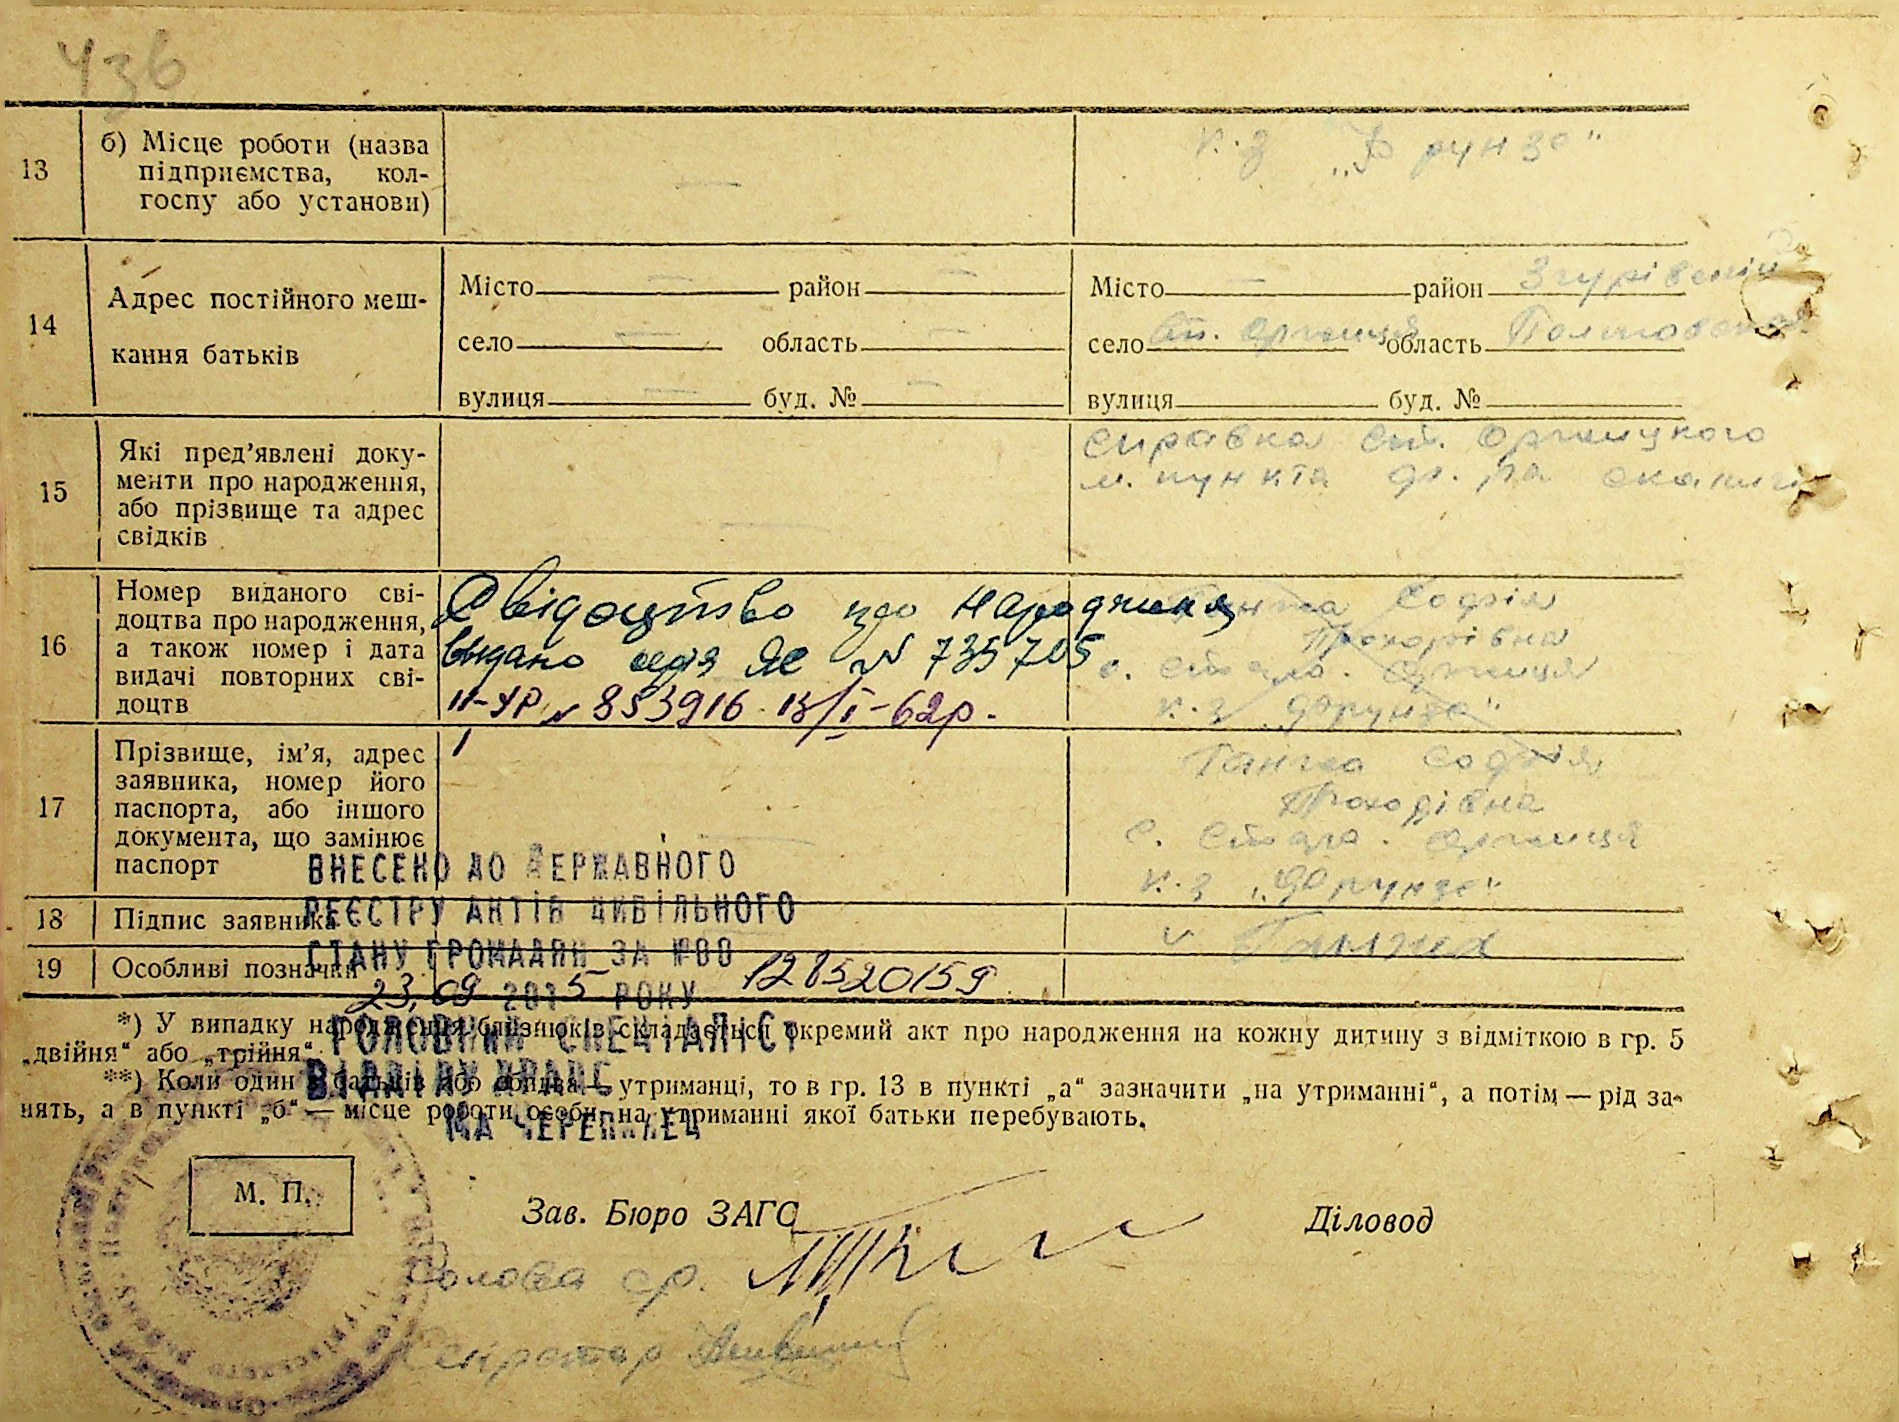 436
13
б) Місце роботи (назва
підприємства, кол-
госпу або установи)
к.з „Фрунзе“
14
Адрес постійного меш-
кання батьків
Місто район
село область
вулиця буд. №
Місто район Згурівський
село Ст. Оржиця область Полтавська
вулиця буд. №
15
Які пред’явлені доку-
менти про народження,
або прізвище та адрес
свідків
справка Ст. Оржицкого
м. пункта
16
Номер виданого сві-
доцтва про народження,
а також номер і дата
видачі повторних сві-
доцтв
Свідоцтво про народження
видано серія ЯЄ № 735705
II-УР № 853916 13/I-62р.
Софія
Прохорівна
с. Стара Оржиця
к.з „Фрунзе“
17
Прізвище, ім’я, адрес
заявника, номер його
паспорта, або іншого
документа, що замінює
паспорт
Ганжа Софія
Прохорівна
с. Стара Оржиця
к.з „Фрунзе“
18
Підпис заявника
v Ганжа
19
Особливі позначки
ВНЕСЕНО ДО ДЕРЖАВНОГО
РЕЄСТРУ АКТІВ ЦИВІЛЬНОГО
СТАНУ ГРОМАДЯН ЗА №00
23.09 2015 РОКУ
ГОЛОВНИЙ СПЕЦІАЛІСТ
ВІДДІЛУ ДРАЦС
*) У випадку народження близнюків складається окремий акт про народження на кожну дитину з відміткою в гр. 5
„двійня“ або „трійня“.
**) Коли один з батьків або обидва — утриманці, то в гр. 13 в пункті „а“ зазначити „на утриманні“, а потім — рід за-
нять, а в пункті „б“ — місце роботи особи, на утриманні якої батьки перебувають.
М. П.
Зав. Бюро ЗАГС
Діловод
Голова ср.
Секретар